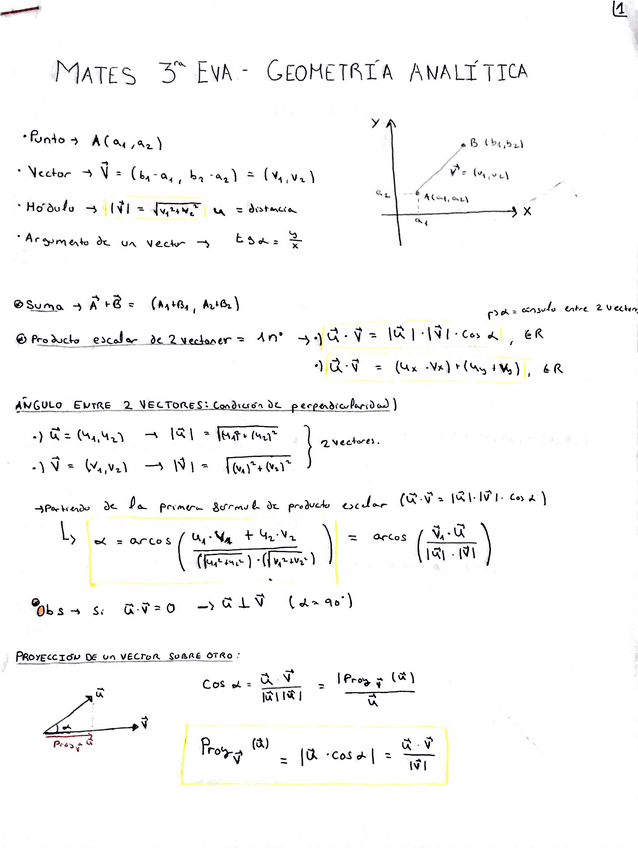 1
MATES 3ª EVA - GEOMETRÍA ANALÍTICA
· Punto → A(a₁, a₂)
· Vector → V⃗ = (b₁-a₁, b₂-a₂) = (v₁, v₂)
· Módulo → |V⃗| = √(v₁²+v₂²) u = distancia
· Argumento de un vector → tg α = y/x
Y
B (b₁, b₂)
V⃗ = (v₁, v₂)
a₂
A(a₁, a₂)
a₁
X
Suma → A⃗ + B⃗ = (A₁+B₁, A₂+B₂)
α = ángulo entre 2 vectores
Producto escalar de 2 vectores = 1 nº → ·) u⃗ · v⃗ = |u⃗| · |v⃗| · cos α, ∈R
·) u⃗ · v⃗ = (ux · vx) + (uy + vy), ∈R
ÁNGULO ENTRE 2 VECTORES: Condición de perpendicularidad)
·) u⃗ = (u₁, u₂) → |u⃗| = √((u₁)² + (u₂)²)
·) v⃗ = (v₁, v₂) → |v⃗| = √((v₁)² + (v₂)²)
2 vectores.
→ Partiendo de la primera formula de producto escalar (u⃗ · v⃗ = |u⃗| · |v⃗| · cos α)
↳ α = arcos ((u₁ · v₁ + u₂ · v₂) / ((√(u₁²+u₂²)) · (√(v₁²+v₂²)))) = arcos ((v⃗₁ · u⃗) / (|u⃗| · |v⃗|))
Obs → si u⃗ · v⃗ = 0 → u⃗ ⊥ v⃗ (α = 90°)
PROYECCIÓN DE UN VECTOR SOBRE OTRO:
cos α = (u⃗ · v⃗) / (|u⃗| |u⃗|) = |Proy v⃗ (u⃗)| / u⃗
u⃗
α
v⃗
Proy v⃗ u⃗
Proy v⃗ (u⃗) = |u⃗ · cos α| = (u⃗ · v⃗) / |v⃗|